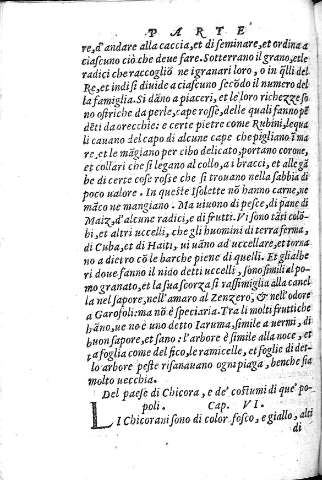 PARTE
re, d'andare alla caccia, et di seminare, et ordina a
ciascuno ciò che deue fare. Sotterrano il grano, et le
radici che raccogliõ ne i granari loro, o in q̃lli del
Re, et indi si diuide a ciascuno secõdo il numero del
la famiglia. Si dãno a piaceri, et le lor richezze so
no ostriche da perle, cape rosse, delle quali fanno pẽ
dẽti da orecchie: e certe pietre come Rubini, le qua
li cauano del capo di alcune cape che pigliano ĩ ma
re, et le mãgiano per cibo delicato, portano corone,
et collari che si legano al collo, a i bracci, et alle gã
be di certe cose rosse che si trouano nella sabbia di
poco ualore. In queste Isolette nõ hanno carne, ne
mãco ne mangiano. Ma uiuono di pesce, di pane di
Maiz, d'alcune radici, e di frutti. Vi sono tãti colõ
bi, et altri uccelli, che gli huomini di terra ferma,
di Cuba, et di Haiti, ui uãno ad uccellare, et torna
no a dietro cõ le barche piene di quelli. Et gli albe
ri doue fanno il nido detti uccelli, sono simili al po-
mo granato, et la sua scorza si rassimiglia alla canel
la nel sapore, nell'amaro al Zenzero, & nell'odore
a Garofoli: ma nõ è speciaria. Tra li molti frutti che
hãno, ue no è uno detto Iaruma, simile a uermi, di
buon sapore, et sano: l'arbore è simile alla noce, et
la foglia come del fico, le ramicelle, et foglie di det-
lo arbore peste risanauano ogni piaga, benche sia
molto uecchia.
Del paese di Chicora, e de' costumi di que' po-
poli. Cap. VI.
LI Chicorani sono di color fosco, e giallo, alti
di